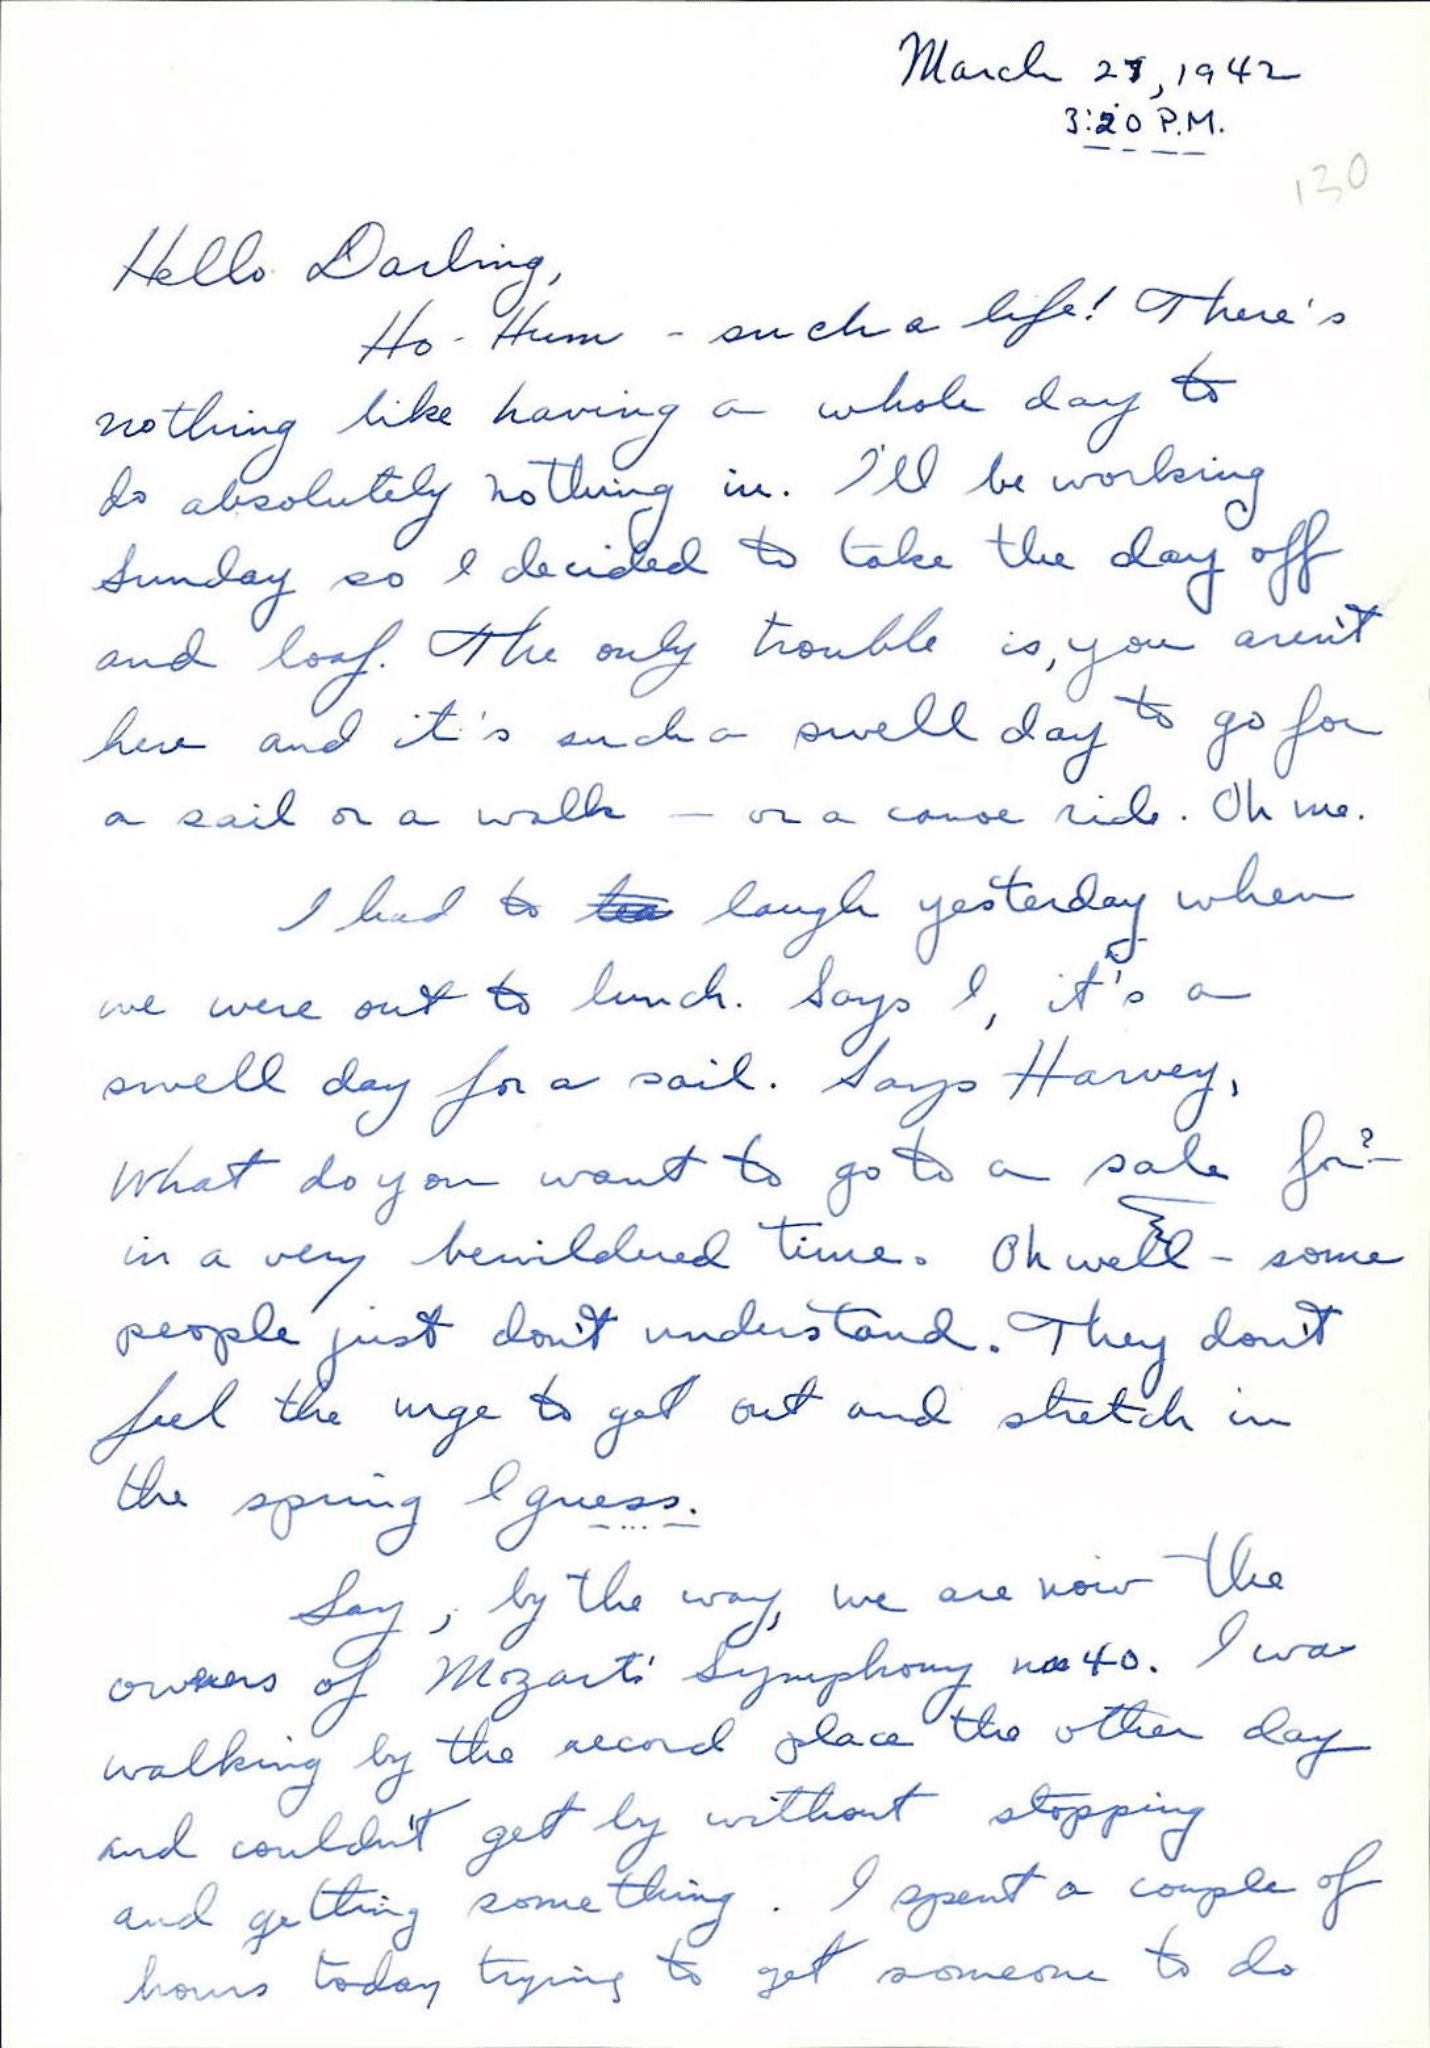 March 27, 1942
3:20 P.M.
130
Hello Darling,
Ho-Hum - such a life! There's
nothing like having a whole day to
do absolutely nothing in. I'll be working
Sunday so I decided to take the day off
and loaf. The only trouble is, you aren't
here and it's such a swell day to go for
a sail or a walk — or a canoe ride. Oh me.
I had to laugh yesterday when
we were out to lunch. Says I, it's a
swell day for a sail. Says Harvey,
What do you want to go to a sale for? -
in a very bewildered time. Oh well - some
people just don't understand. They don't
feel the urge to get out and stretch in
the spring I guess.
Say, by the way, we are now the
owners of Mozart's Symphony no 40. I was
walking by the record place the other day
and couldn't get by without stopping
and getting something. I spent a couple of
hours today trying to get someone to do